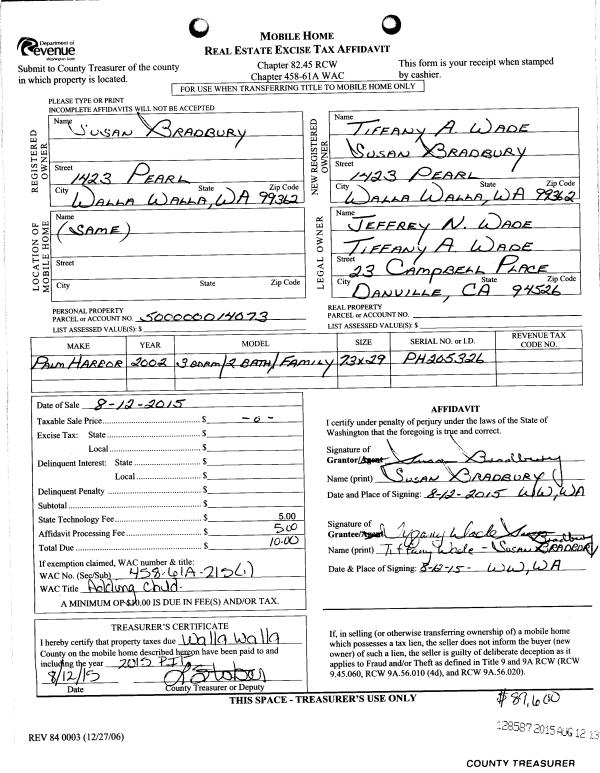 Department of
Revenue
Washington State
MOBILE HOME
REAL ESTATE EXCISE TAX AFFIDAVIT
Submit to County Treasurer of the county
in which property is located.
Chapter 82.45 RCW
Chapter 458-61A WAC
This form is your receipt when stamped
by cashier.
FOR USE WHEN TRANSFERRING TITLE TO MOBILE HOME ONLY
PLEASE TYPE OR PRINT
INCOMPLETE AFFIDAVITS WILL NOT BE ACCEPTED
REGISTERED
OWNER
Name
SUSAN BRADBURY
Street
1423 PEARL
City State Zip Code
WALLA WALLA, WA 99362
NEW REGISTERED
OWNER
Name
TIFFANY A. WADE
SUSAN BRADBURY
Street
1423 PEARL
City State Zip Code
WALLA WALLA, WA 99362
LOCATION OF
MOBILE HOME
Name
(SAME)
Street
City State Zip Code
LEGAL OWNER
Name
JEFFREY N. WADE
TIFFANY A. WADE
Street
23 CAMPBELL PLACE
City State Zip Code
DANVILLE, CA 94526
PERSONAL PROPERTY
PARCEL or ACCOUNT NO. 500000014073
LIST ASSESSED VALUE(S): $
REAL PROPERTY
PARCEL or ACCOUNT NO.
LIST ASSESSED VALUE(S): $
MAKE YEAR MODEL SIZE SERIAL NO. or I.D. REVENUE TAX CODE NO.
PALM HARBOR 2002 3 BDRM/2 BATH/FAMILY 73X29 PH205326
Date of Sale 8-12-2015
Taxable Sale Price $ -0-
Excise Tax: State $
Local $
Delinquent Interest: State $
Local $
Delinquent Penalty $
Subtotal $
State Technology Fee $ 5.00
Affidavit Processing Fee $ 5.00
Total Due $ 10.00
If exemption claimed, WAC number & title:
WAC No. (Sec/Sub) 458-61A-215(1)
WAC Title Adding Child.
A MINIMUM OF $10.00 IS DUE IN FEE(S) AND/OR TAX.
AFFIDAVIT
I certify under penalty of perjury under the laws of the State of
Washington that the foregoing is true and correct.
Signature of
Grantor/Agent Susan Bradbury
Name (print) SUSAN BRADBURY
Date and Place of Signing: 8-12-2015 WW, WA
Signature of
Grantee/Agent Tiffany Wade Susan Bradbury
Name (print) Tiffany Wade - SUSAN BRADBURY
Date & Place of Signing: 8-12-15- WW, WA
TREASURER'S CERTIFICATE
I hereby certify that property taxes due Walla Walla
County on the mobile home described hereon have been paid to and
including the year 2015
8/12/15
Date County Treasurer or Deputy
If, in selling (or otherwise transferring ownership of) a mobile home
which possesses a tax lien, the seller does not inform the buyer (new
owner) of such a lien, the seller is guilty of deliberate deception as it
applies to Fraud and/or Theft as defined in Title 9 and 9A RCW (RCW
9.45.060, RCW 9A.56.010 (4d), and RCW 9A.56.020).
THIS SPACE - TREASURER'S USE ONLY
$89,600
128587 2015 AUG 12 13
REV 84 0003 (12/27/06)
COUNTY TREASURER